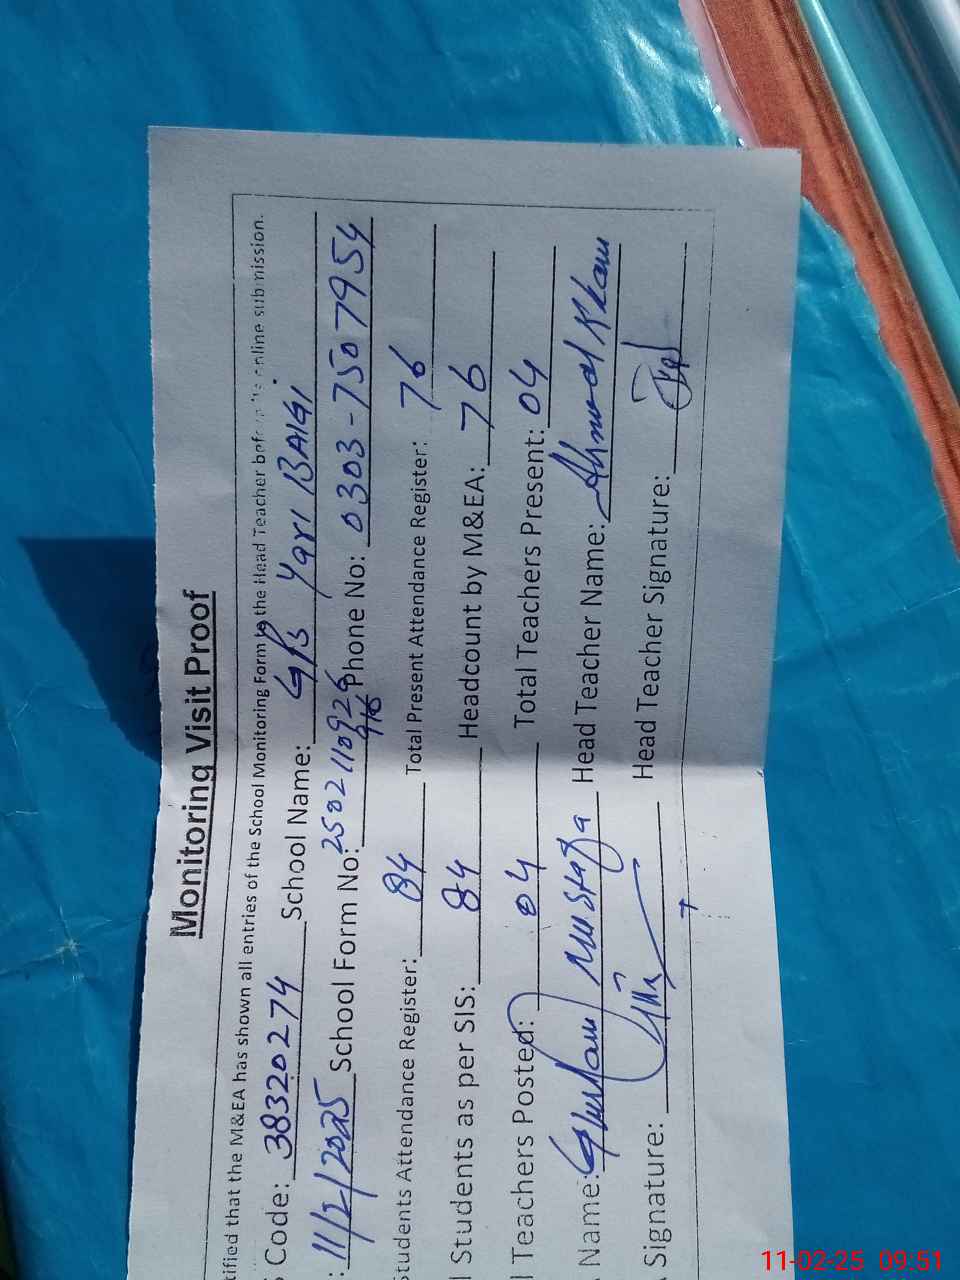 Monitoring Visit Proof
tified that the M&EA has shown all entries of the School Monitoring Form to the Head Teacher before online submission.
Code: 38320274 School Name: GPS Yari BAIGI
: 11/2/2025 School Form No: 2502110926 916 Phone No: 0303-7507954
Students Attendance Register: 84 Total Present Attendance Register: 76
l Students as per SIS: 84 Headcount by M&EA: 76
l Teachers Posted: 04 Total Teachers Present: 04
Name: Ghulam Mustafa Head Teacher Name: Ahmad Khan
Signature: Head Teacher Signature:
11-02-25 09:51